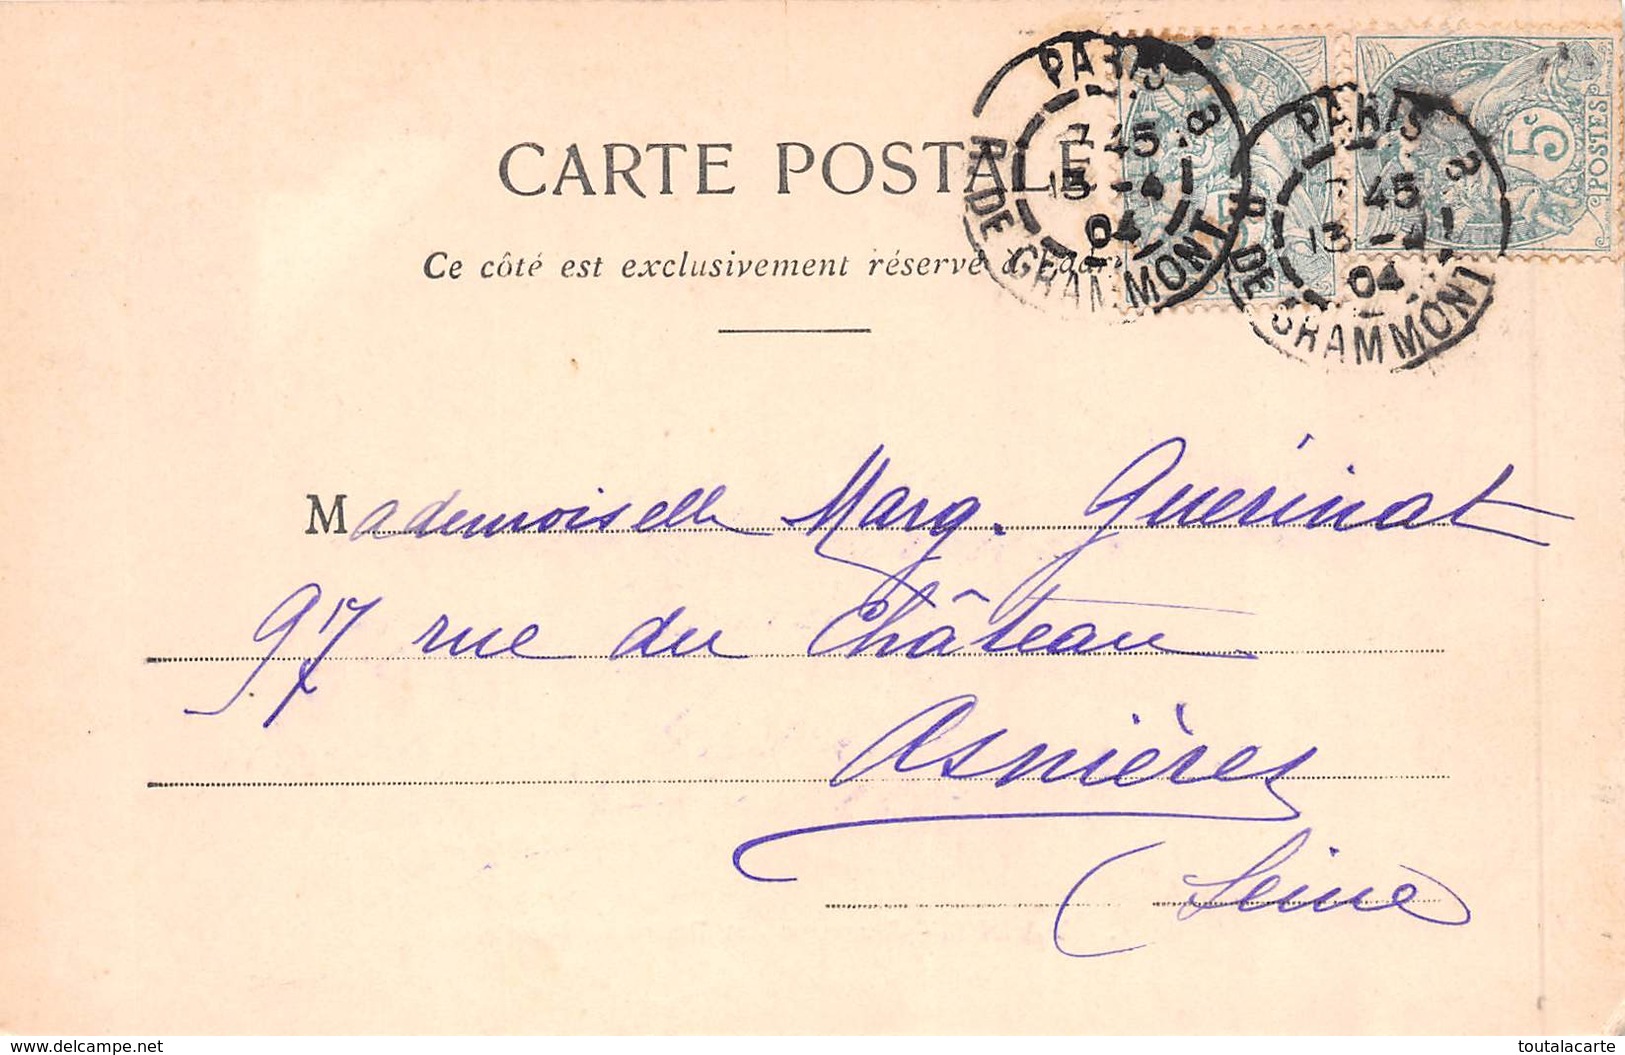 CARTE POSTALE
Ce côté est exclusivement réservé à
PARIS 2
7 45
13 -4
04
R. DE GRAMMONT
PARIS 2
7 45
13 -4
04
R. DE GRAMMONT
5c
POSTES
Mademoiselle Marg. Guérinat
97 rue du Château
Asnières
(Seine
www.delcampe.net
toutalacarte